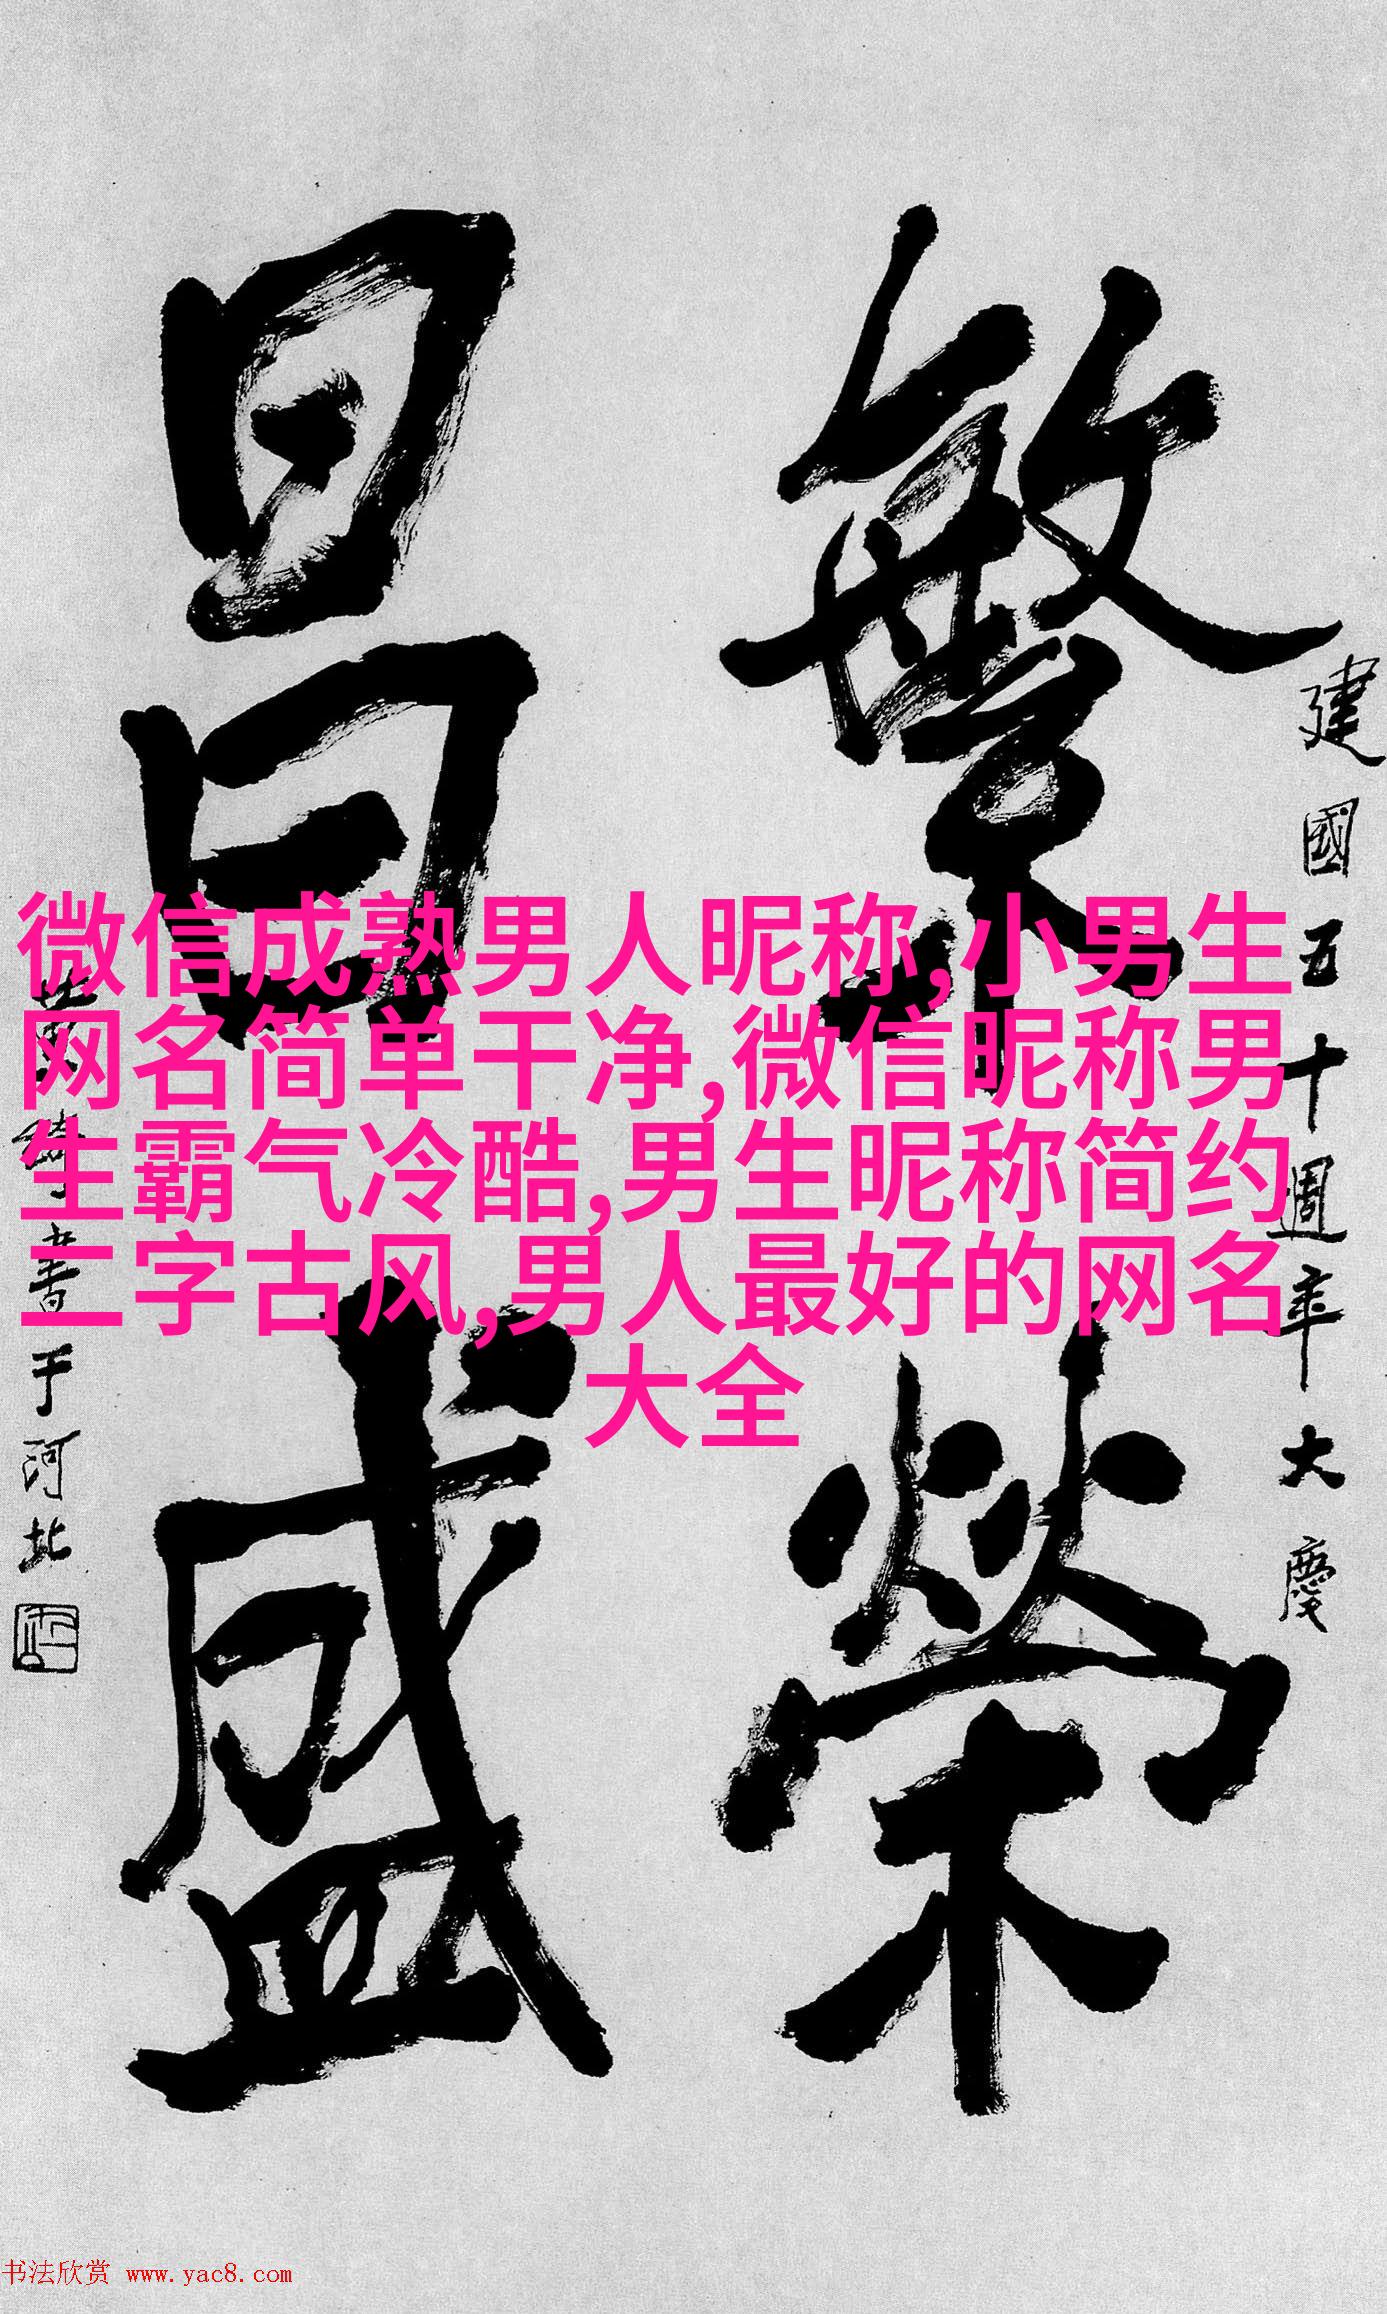 建國五十週年大慶
繁榮
昌盛
書于河北
微信成熟男人昵称,小男生
网名简单干净,微信昵称男
生霸气冷酷,男生昵称简约
二字古风,男人最好的网名
大全
书法欣赏 www.yac8.com